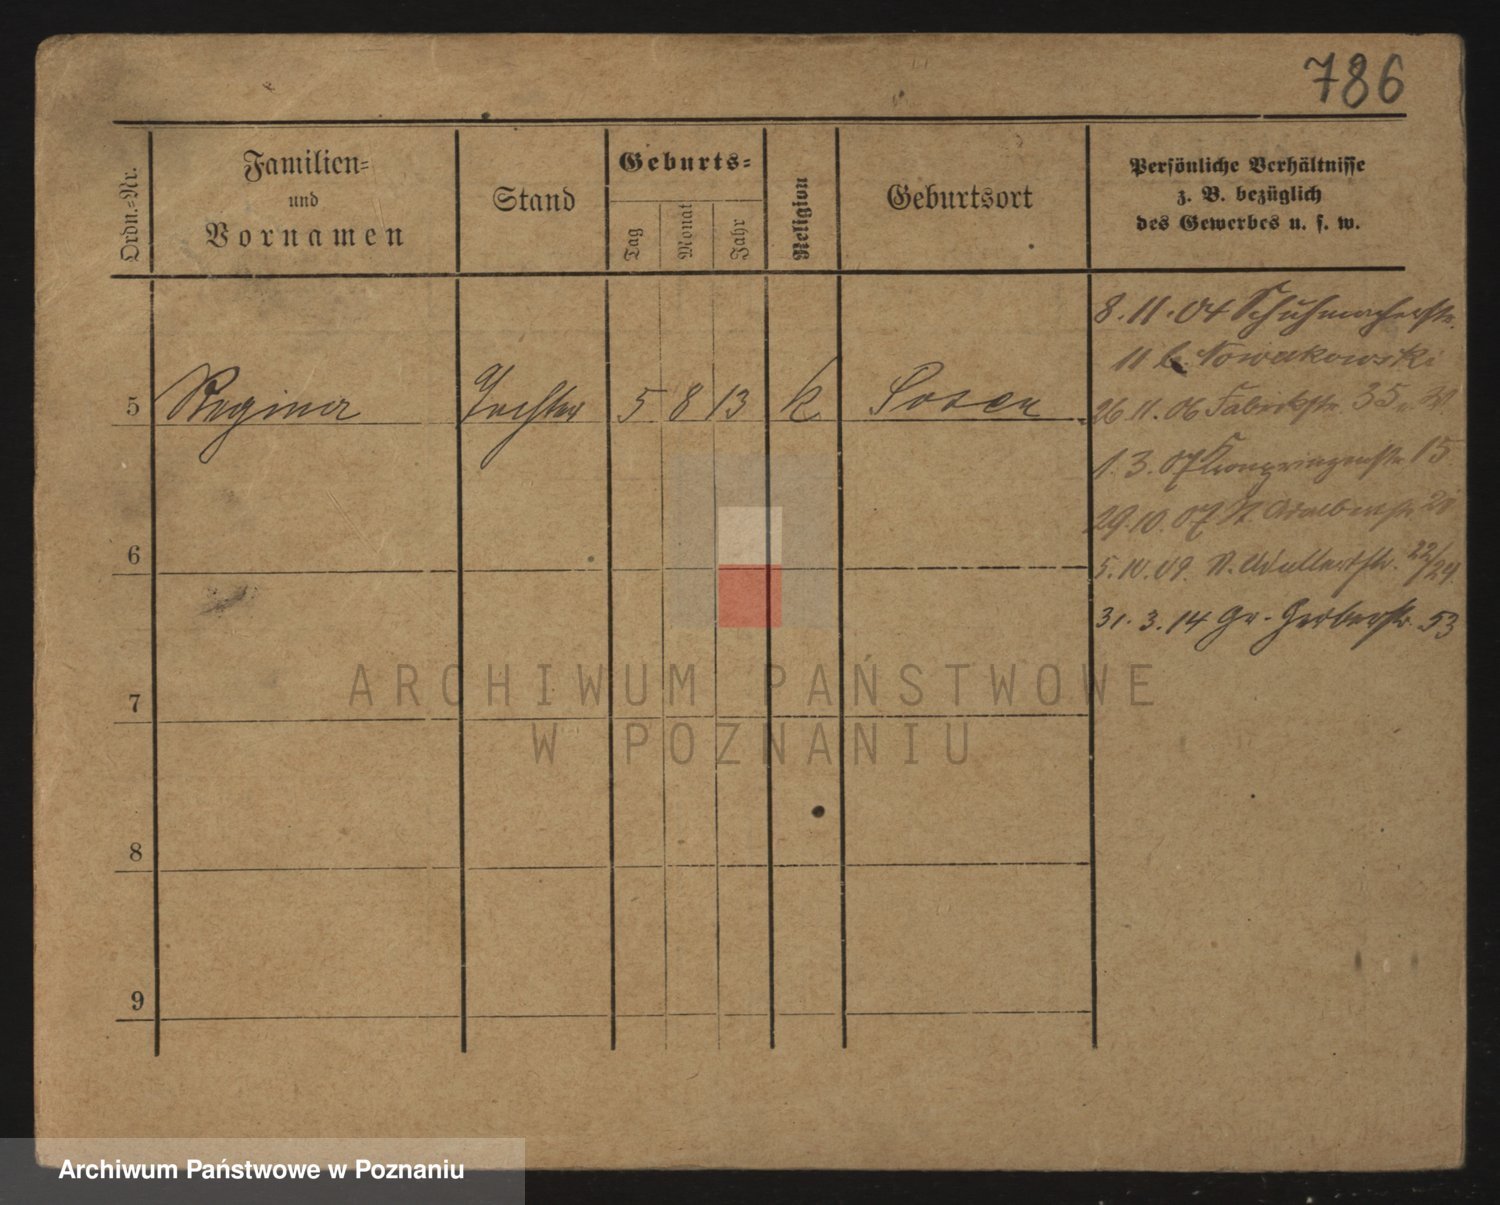 786
Ordn.=Nr.
Familien=
und
Vornamen
Stand
Geburts=
Tag
Monat
Jahr
Religion
Geburtsort
Persönliche Verhältnisse
z. B. bezüglich
des Gewerbes u. s. w.
8.11.04 Schuhmacherstr.
11 b. Nowakowski
5 Regina Tochter 5 8 13 k Posen
26.11.06 Fabrikstr. 35
1.3.07 Kronprinzenstr. 15
29.10.07 St. Adalbertstr.
6
5.10.09. St. Adalbertstr. 22/24
31.3.14 Gr. Gerberstr. 53
7
8
9
ARCHIWUM PAŃSTWOWE
W POZNANIU
Archiwum Państwowe w Poznaniu